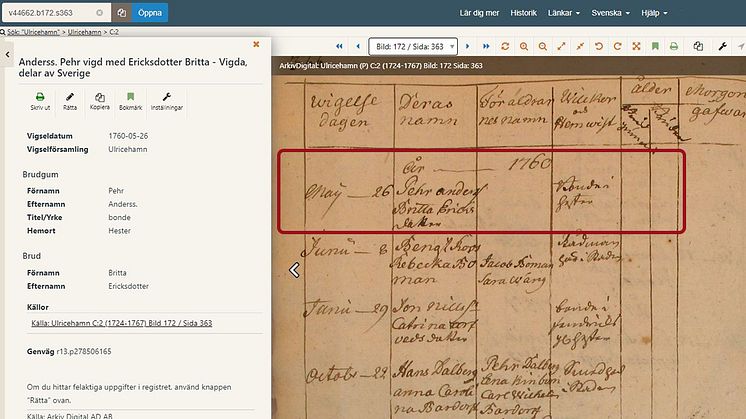 v44662.b172.s363
Öppna
Lär dig mer Historik Länkar Svenska Hjälp
Sök: "Ulricehamn" > Ulricehamn > C:2
Anderss. Pehr vigd med Ericksdotter Britta - Vigda,
delar av Sverige
Skriv ut Rätta Kopiera Bokmärk Inställningar
Vigseldatum 1760-05-26
Vigselförsamling Ulricehamn
Brudgum
Förnamn Pehr
Efternamn Anderss.
Titel/Yrke bonde
Hemort Hester
Brud
Förnamn Britta
Efternamn Ericksdotter
Källor
Källa: Ulricehamn C:2 (1724-1767) Bild 172 / Sida 363
Genväg r13.p278506165
Om du hittar felaktiga uppgifter i registret, använd knappen
"Rätta" ovan.
Källa: Arkiv Digital AD AB
Bild: 172 / Sida: 363
ArkivDigital: Ulricehamn (P) C:2 (1724-1767) Bild: 172 Sida: 363
wigelse Deras Föräldrar ålder Morgon
dagen namn nes namn Hemwist gåfwa
åhr 1760
May 26 Pehr anders bonde i
Britta Ericks Hester
dotter
Junii 8 Bengt Rådman
Rebecka Bo Jacob Boman
man Sara Wang
Junii 29 Jon bonde i
Catrina
Octobr 22 Hans Dalberg Pehr Dalberg
anna
na Bardorf Bardorf